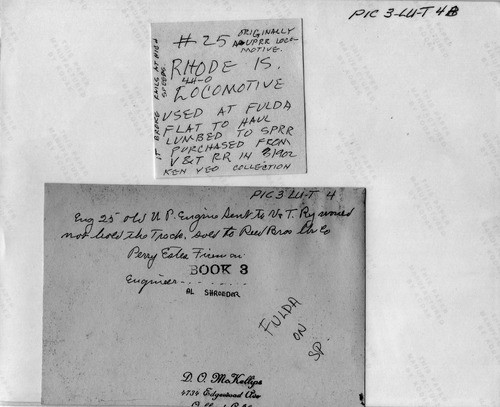 PIC 3-LU-T 4B
#25 ORIGINALLY
A UPRR LOCO-
MOTIVE.
RHODE IS.
4-4-0
LOCOMOTIVE
USED AT FULDA
FLAT TO HAUL
LUMBED TO SPRR
PURCHASED FROM
V&T RR IN 8/1902
KEN YEO COLLECTION
IT BROKE RAILS AT HIGH
SPEEDS.
PIC 3 LU-T 4
Eng 25 old U.P. Engine Sent to V&T. Ry would
not hold the Track. sold to Reed Bros Lbr Co
Perry Estes Fireman
BOOK 3
Engineer - - - - - - -
AL SHROEDER
FULDA
ON
SP.
D. O. McKellips
4734 Edgewood Ave